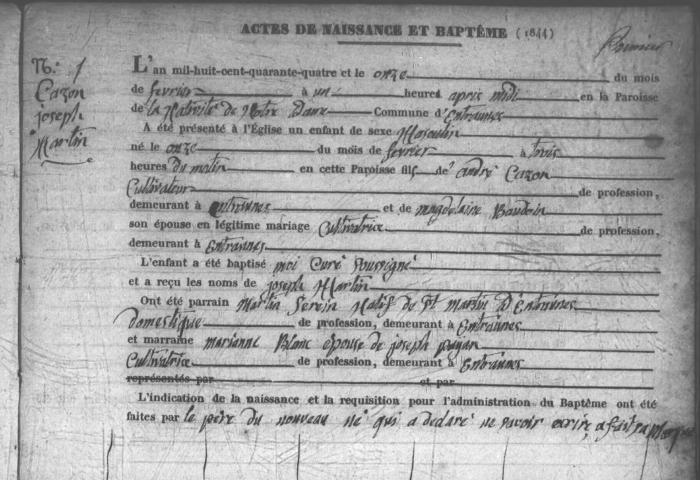 ACTES DE NAISSANCE ET BAPTÊME (1844)
Premier
N.º 1
Cazon
joseph
Martin
L'an mil-huit-cent-quarante-quatre et le onze du mois
de fevrier à un heures après midi en la Paroisse
de la Nativité de Notre Dame Commune d'Entraunes
A été présenté à l'Église un enfant de sexe Masculin
né le onze du mois de fevrier à trois
heures Du matin en cette Paroisse fils de andré Cazon
Cultivateur de profession,
demeurant à entraunes et de magdelaine Baudoin
son épouse en légitime mariage Cultivatrice de profession,
demeurant à Entraunes
L'enfant a été baptisé moi Curé soussigné
et a reçu les noms de joseph Martin
Ont été parrain Martin Serein Natif de St martin D'Entraunes
domestique de profession, demeurant à Entraunes
et marraine marianne Blanc épouse de joseph payan
Cultivatrice de profession, demeurant à Entraunes
représentés par et par
L'indication de la naissance et la requisition pour l'administration du Baptême ont été
faites par le père du nouveau né qui a declaré ne savoir ecrire, a fait sa marque